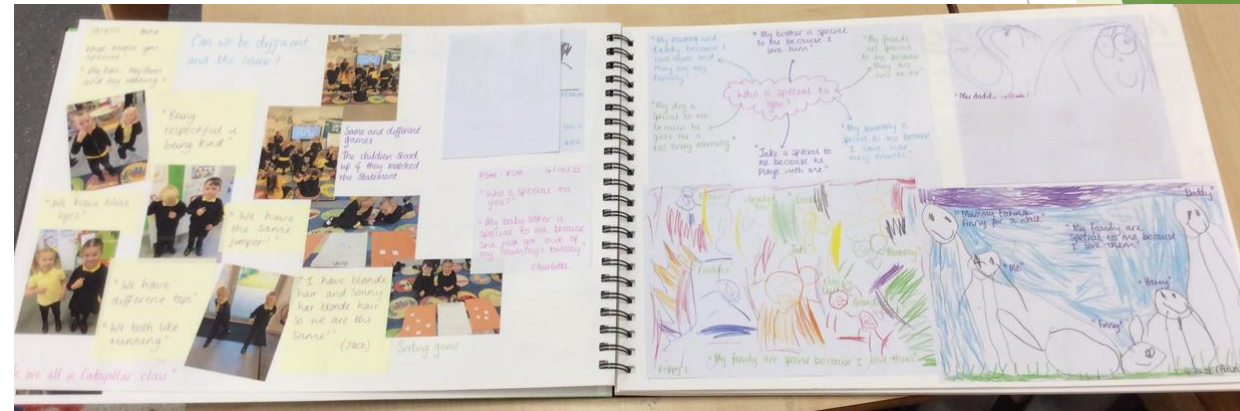 What makes you
special?
and my
Can we be different
and the Same?
"Being
respectful is
being kind"
Same and different
games
The children stood
up if they matched
the statement
"We have blue
eyes"
"We have
the same
jumper"
"We have
different tops"
"We both like
running"
"I have blonde
hair and Sonny
has blonde hair
so we are the
Same"
(Jack)
Sorting game
are all in Caterpillar class"
4/10/22
"Who is special to
you?"
"My baby sister is
special to me because
she just got out of
my mummy's tummy"
Charlotte
"My mummy and
daddy because I
love them and
they are my
family"
"My brother is special
to me because I
love him"
"My friends
are special
to me because
they are
Who is special to
you?
"My dog is
special to me
because he
gives me a
every morning"
"Jake is special to
me because he
plays with me"
"My mummy is
special to me because
I love her
very much"
"My daddy
Jake
Mummy
Grandad
"My family are special because I love them"
"Mummy taking
Finny for a walk"
"Me"
"My family are
special to me because
I love them"
Daddy"
"Finny"